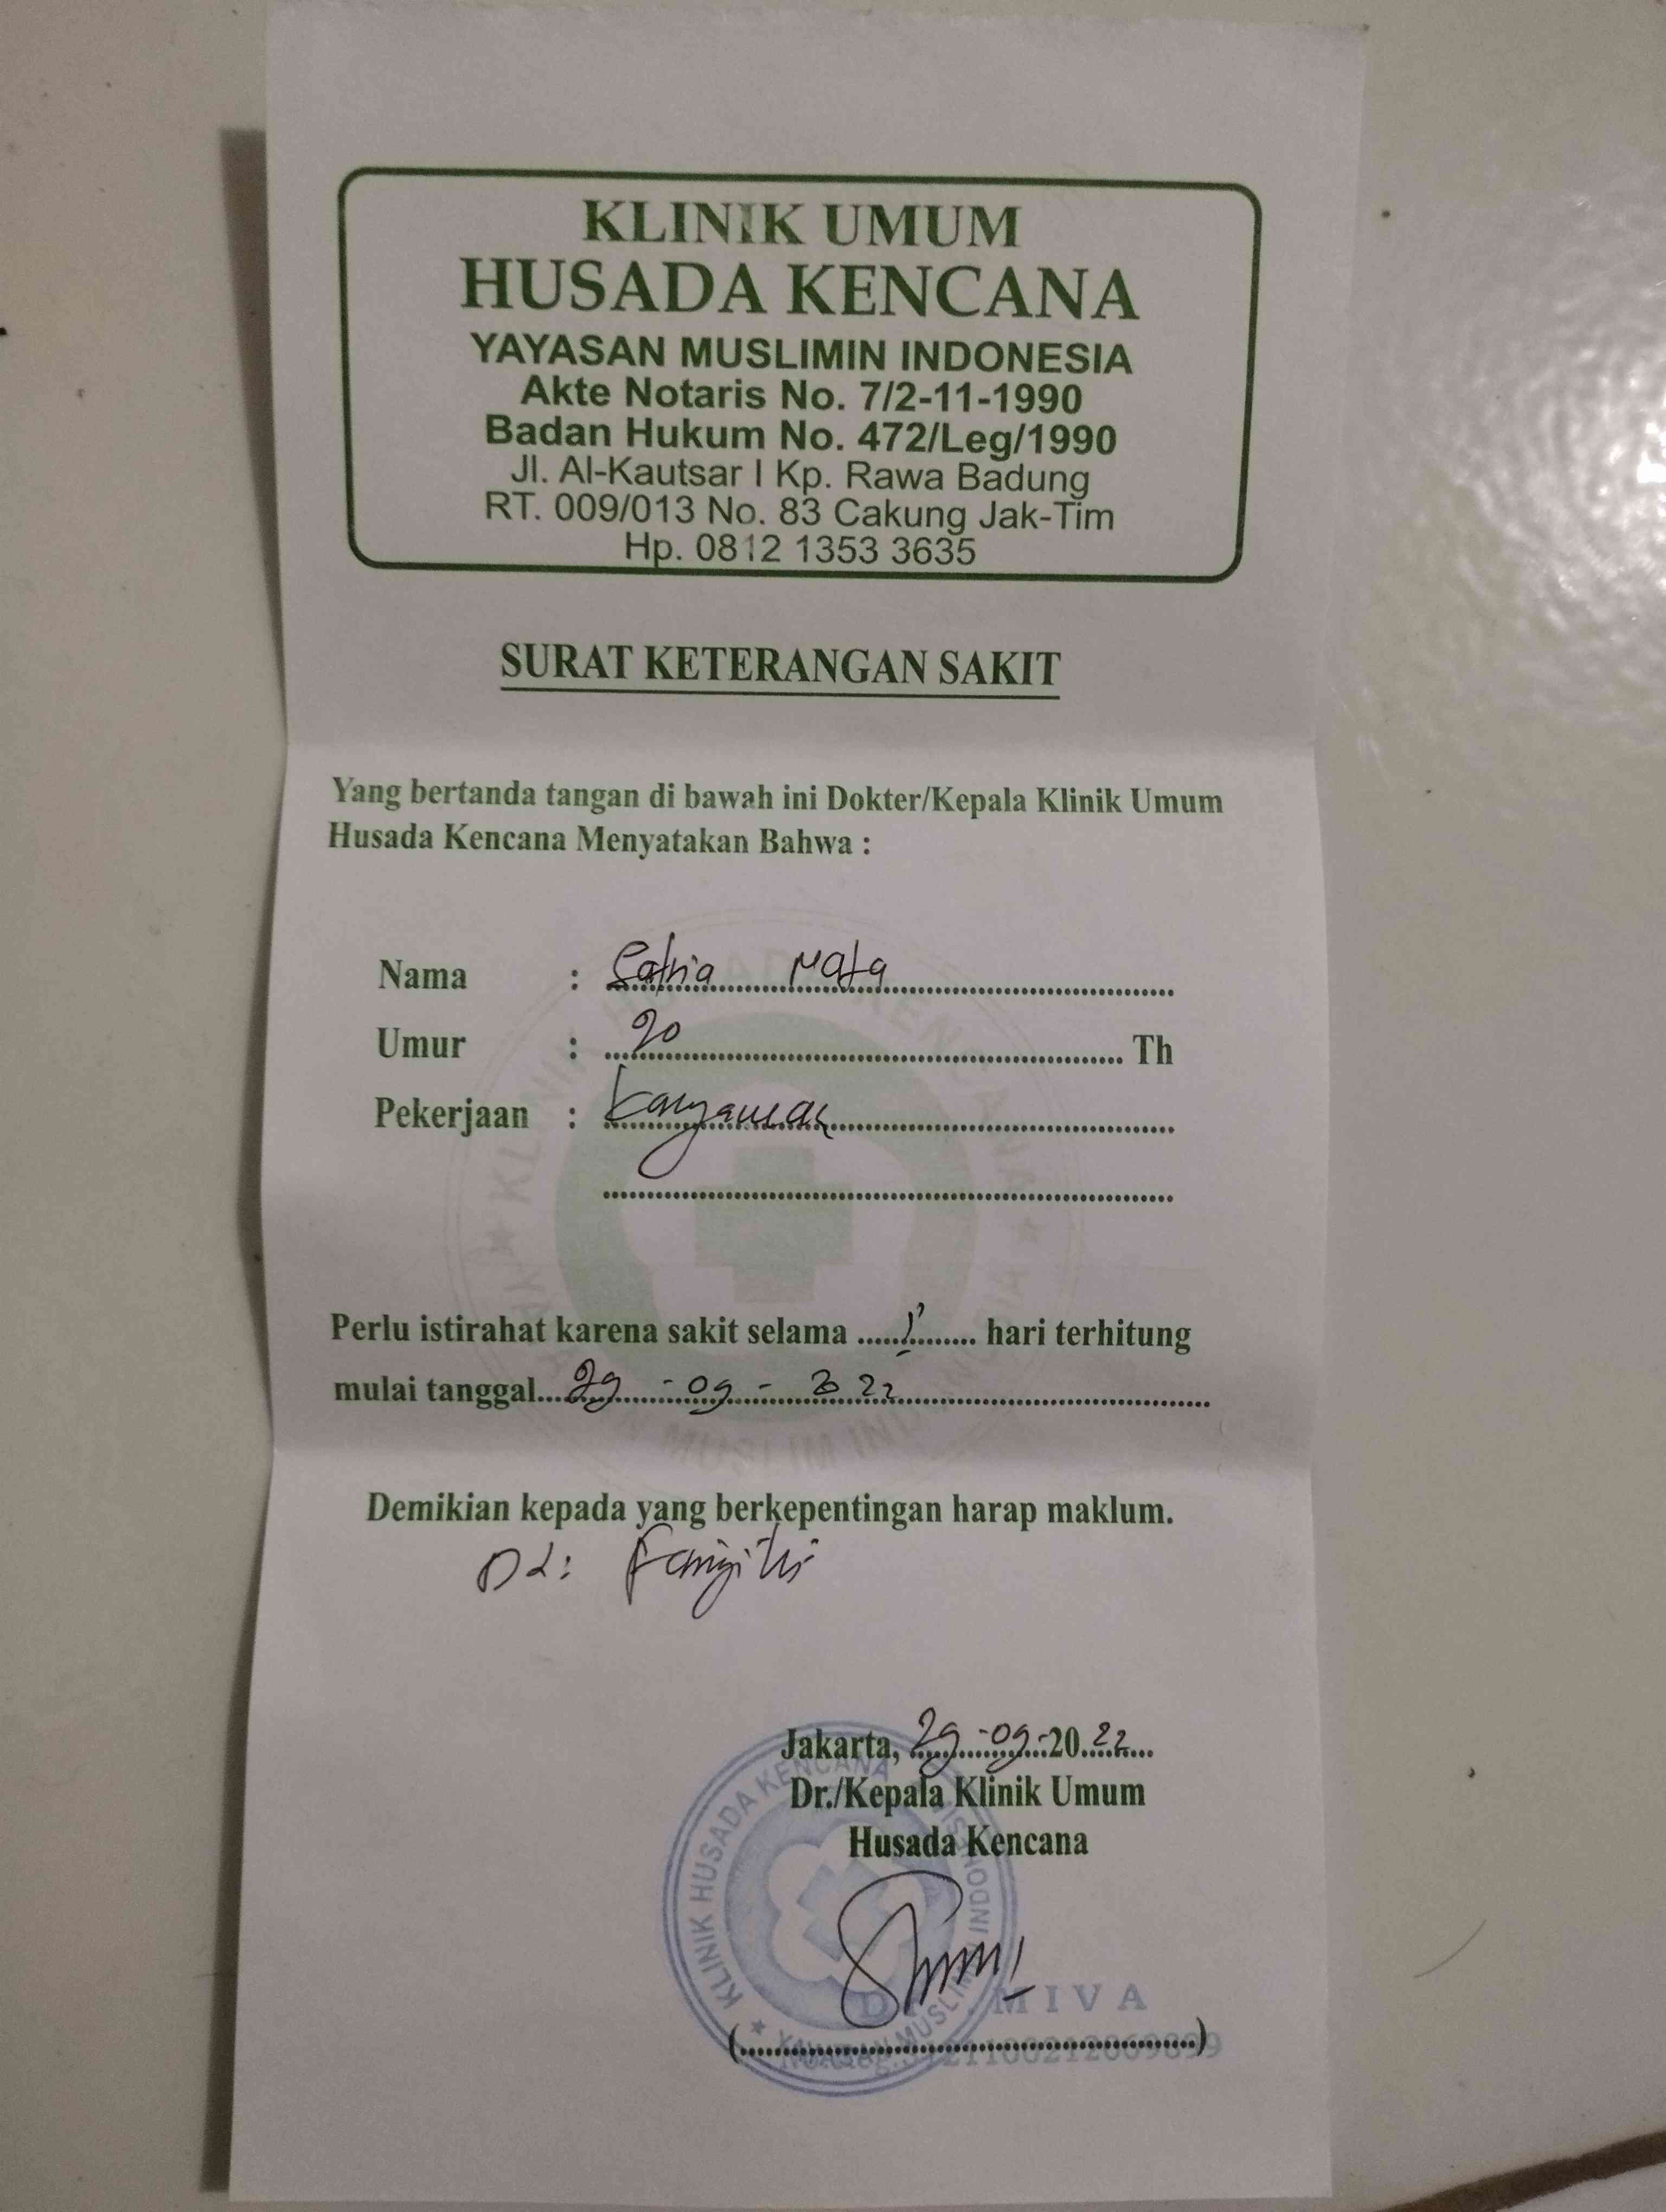 KLINIK UMUM
HUSADA KENCANA
YAYASAN MUSLIMIN INDONESIA
Akte Notaris No. 7/2-11-1990
Badan Hukum No. 472/Leg/1990
Jl. Al-Kautsar I Kp. Rawa Badung
RT. 009/013 No. 83 Cakung Jak-Tim
Hp. 0812 1353 3635
SURAT KETERANGAN SAKIT
Yang bertanda tangan di bawah ini Dokter/Kepala Klinik Umum
Husada Kencana Menyatakan Bahwa :
Nama : Satria
Umur : 20 Th
Pekerjaan : Karyawan
Perlu istirahat karena sakit selama 1 hari terhitung
mulai tanggal 29 - 09 - 2022
Demikian kepada yang berkepentingan harap maklum.
Jakarta, 29-09-2022
Dr./Kepala Klinik Umum
Husada Kencana
KLINIK HUSADA KENCANA
MIVA